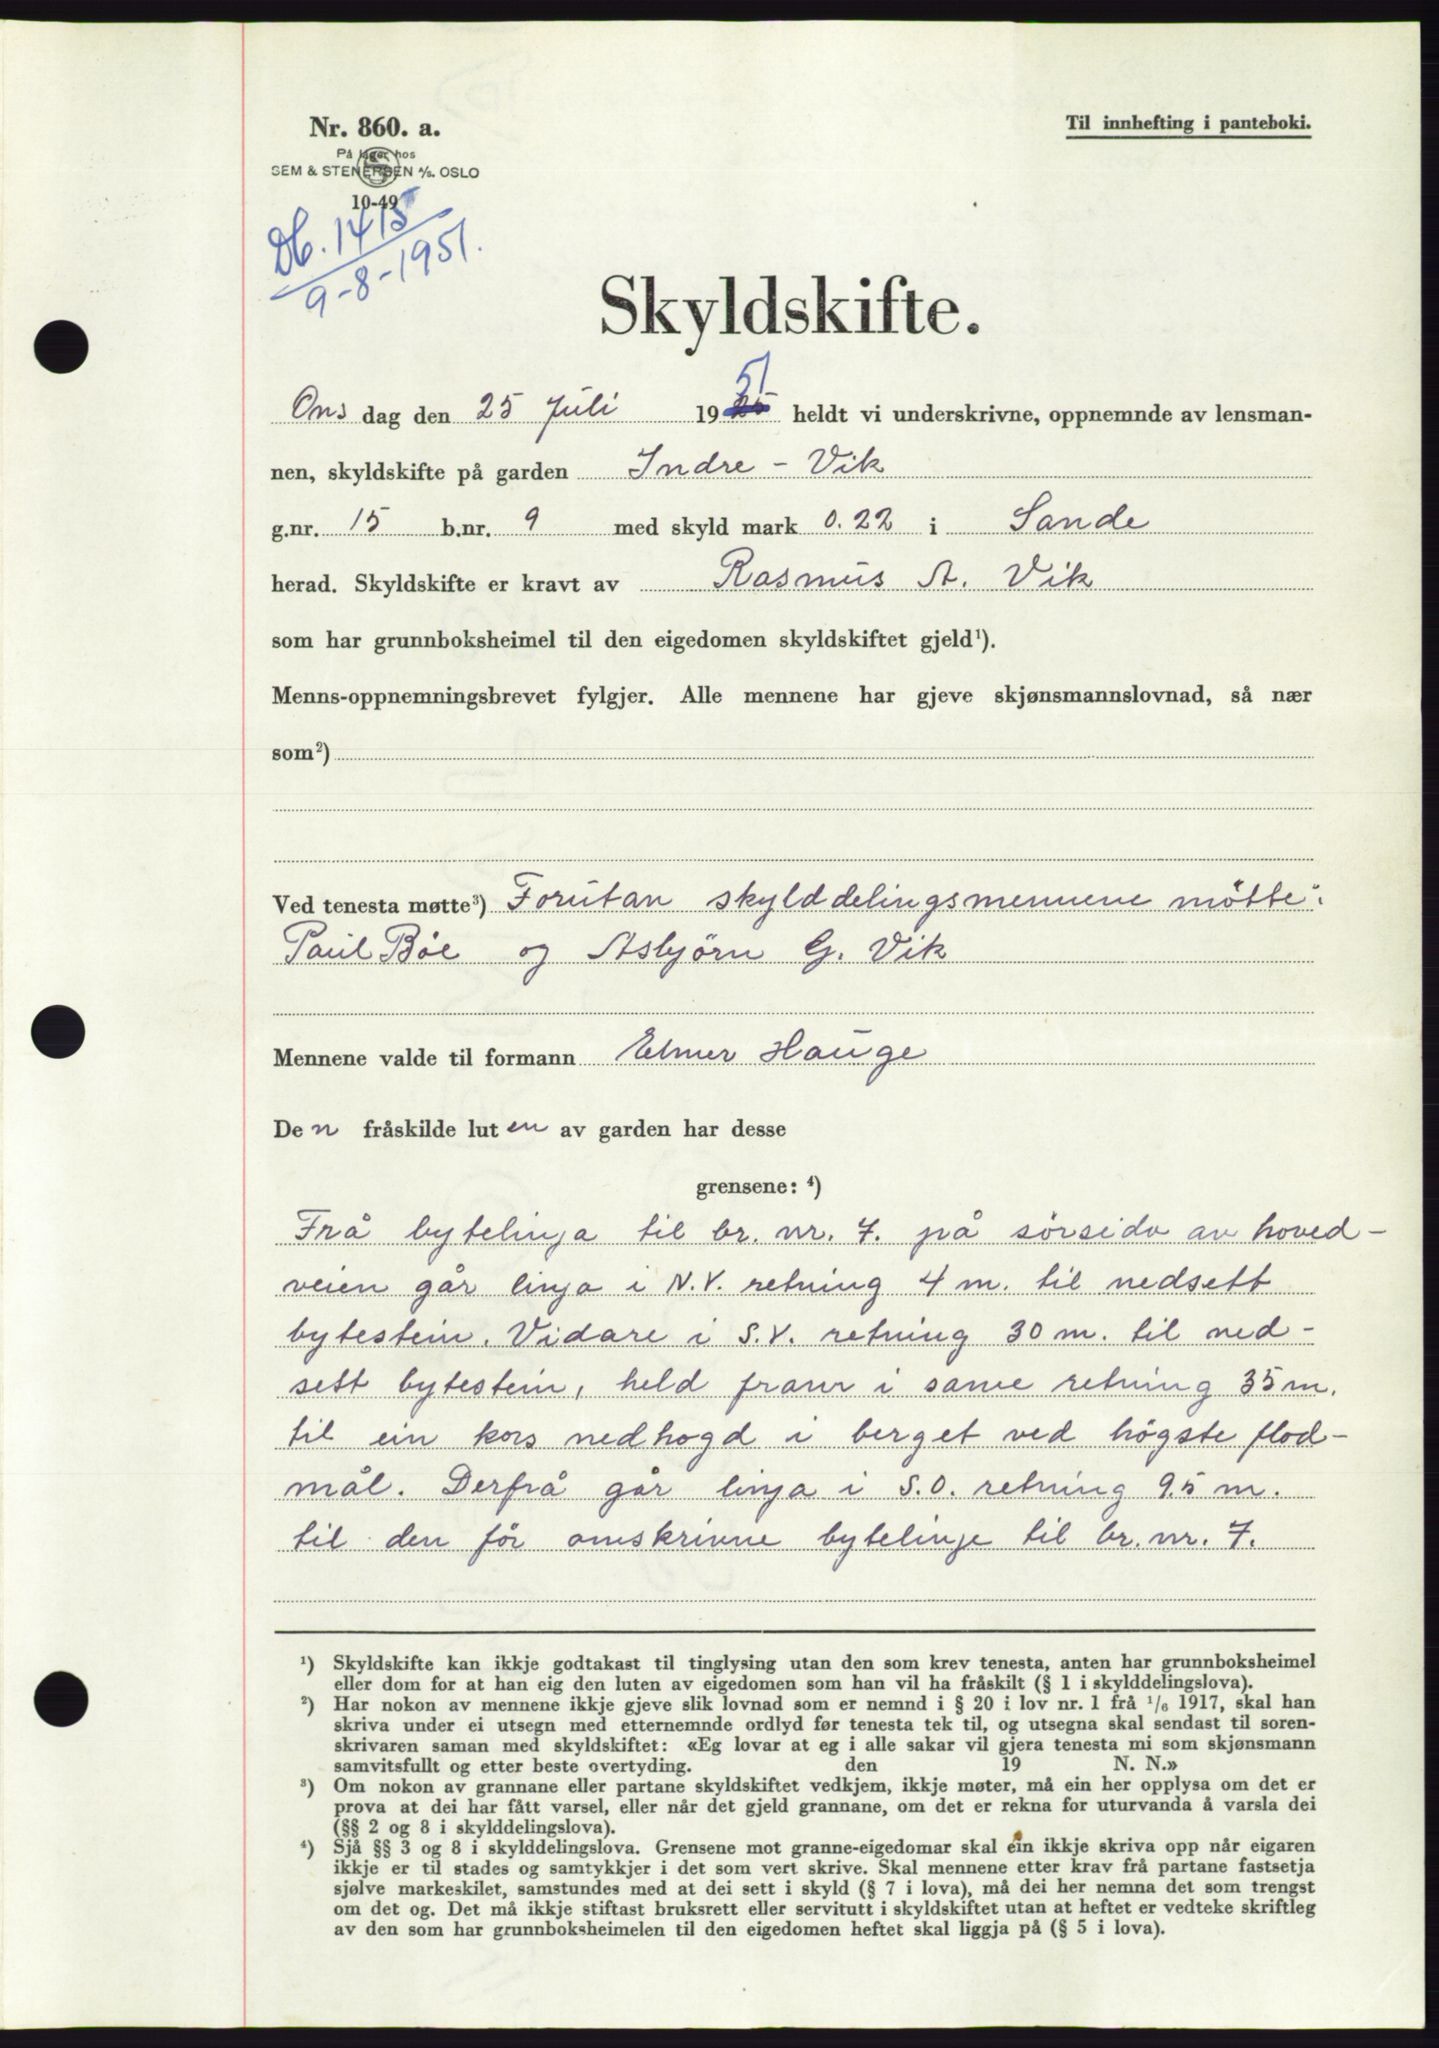 Nr. 860. a.
Til innhefting i panteboki.
På lager hos
SEM & STENERSEN A/S. OSLO
10-49
Db. 1415
9-8-1951.
Skyldskifte.
51
Ons dag den 25 Juli 1925 heldt vi underskrivne, oppnemnde av lensman-
nen, skyldskifte på garden Indre - Vik
g.nr. 15 b.nr. 9 med skyld mark 0.22 i Sande
herad. Skyldskifte er kravt av Rasmus A. Vik
som har grunnboksheimel til den eigedomen skyldskiftet gjeld¹).
Menns-oppnemningsbrevet fylgjer. Alle mennene har gjeve skjønsmannslovnad, så nær
som²)
Ved tenesta møtte³) Forutan skylddelingsmennene mötte:
Paul Böe og Asbjörn G. Vik
Mennene valde til formann Elmer Hauge
De n fråskilde lut en av garden har desse
grensene: ⁴)
Frå bytelinja til br. nr. 7. på sörsida av hoved-
veien går linja i N.V. retning 4 m. til nedsett
bytestein. Vidare i S.V. retning 30 m. til ned-
sett bytestein, held fram i same retning 35 m.
til ein kors nedhogd i berget ved högste flod-
mål. Derfrå går linja i S.O. retning 9.5 m.
til den för omskrivne bytelinje til br. nr. 7.
¹) Skyldskifte kan ikkje godtakast til tinglysing utan den som krev tenesta, anten har grunnboksheimel
eller dom for at han eig den luten av eigedomen som han vil ha fråskilt (§ 1 i skylddelingslova).
²) Har nokon av mennene ikkje gjeve slik lovnad som er nemnd i § 20 i lov nr. 1 frå ¹/₆ 1917, skal han
skriva under ei utsegn med etternemnde ordlyd før tenesta tek til, og utsegna skal sendast til soren-
skrivaren saman med skyldskiftet: «Eg lovar at eg i alle sakar vil gjera tenesta mi som skjønsmann
samvitsfullt og etter beste overtyding. den 19 N. N.»
³) Om nokon av grannane eller partane skyldskiftet vedkjem, ikkje møter, må ein her opplysa om det er
prova at dei har fått varsel, eller når det gjeld grannane, om det er rekna for uturvanda å varsla dei
(§§ 2 og 8 i skylddelingslova).
⁴) Sjå §§ 3 og 8 i skylddelingslova. Grensene mot granne-eigedomar skal ein ikkje skriva opp når eigaren
ikkje er til stades og samtykkjer i det som vert skrive. Skal mennene etter krav frå partane fastsetja
sjølve markeskilet, samstundes med at dei sett i skyld (§ 7 i lova), må dei her nemna det som trengst
om det og. Det må ikkje stiftast bruksrett eller servitutt i skyldskiftet utan at heftet er vedteke skriftleg
av den som har grunnboksheimelen til den eigedomen heftet skal liggja på (§ 5 i lova).